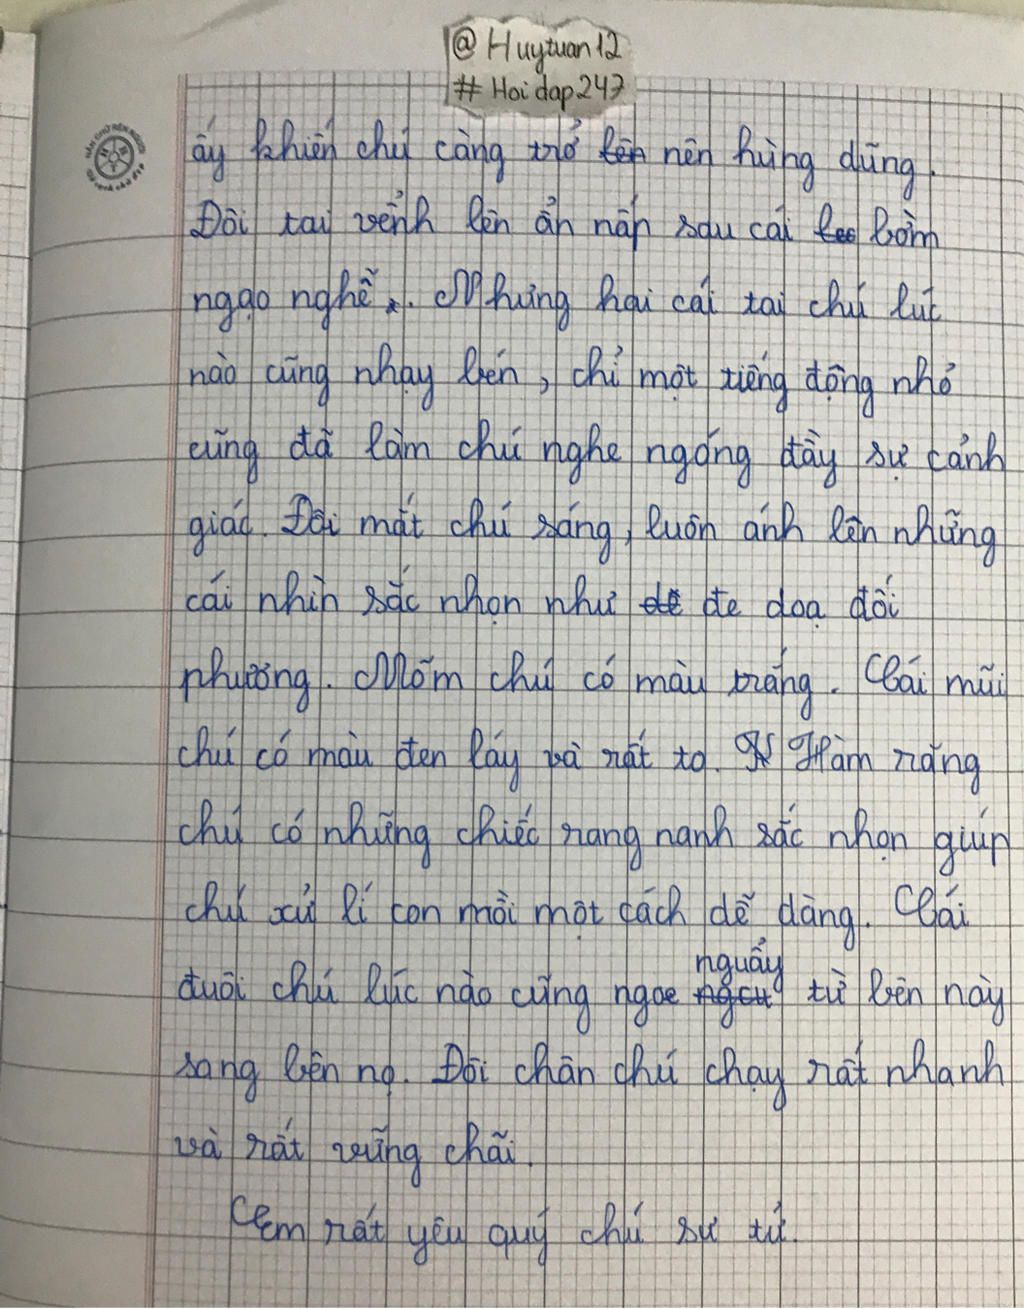 @Huytuan12
#Hoidap247
ấy khiến chú càng trở lên nên hùng dũng.
Đôi tai vểnh lên ẩn nấp sau cái bờm
ngạo nghễ. Nhưng hai cái tai chú lúc
nào cũng nhạy bén, chỉ một tiếng động nhỏ
cũng đã làm chú nghe ngóng đầy sự cảnh
giác. Đôi mắt chú sáng, luôn ánh lên những
cái nhìn sắc nhọn như đê đe doạ đối
phương. Mõm chú có màu trắng. Cái mũi
chú có màu đen láy và rất to. Hàm răng
chú có những chiếc rang nanh sắc nhọn giúp
chú xử lí con mồi một cách dễ dàng. Cái
đuôi chú lúc nào cũng ngoe nguẩy từ bên này
sang bên nọ. Đôi chân chú chạy rất nhanh
và rất vững chãi.
Em rất yêu quý chú sư tử.